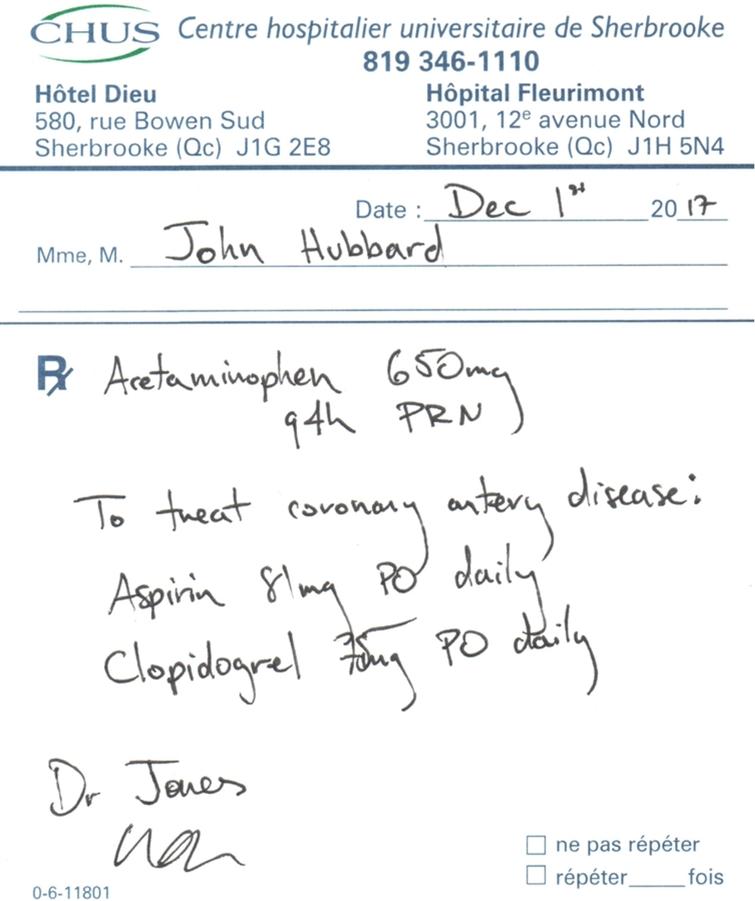 CHUS Centre hospitalier universitaire de Sherbrooke
819 346-1110
Hôtel Dieu
580, rue Bowen Sud
Sherbrooke (Qc) J1G 2E8
Hôpital Fleurimont
3001, 12e avenue Nord
Sherbrooke (Qc) J1H 5N4
Date : Dec 1st 2017
Mme, M. John Hubbard
Rx Acetaminophen 650mg
q4h PRN
To treat coronary artery disease:
Aspirin 81mg PO daily
Clopidogrel 75mg PO daily
Dr Jones
ne pas répéter
répéter_____fois
0-6-11801